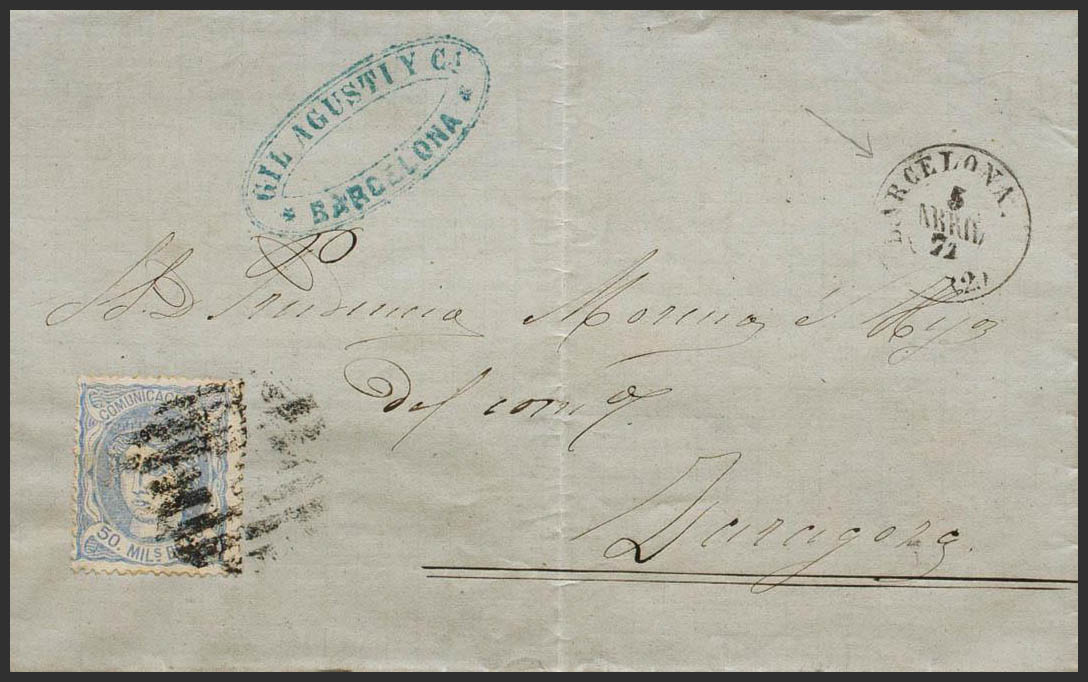 GIL AGUSTI Y Cᴬ
* BARCELONA *
BARCELONA.
5
ABRIL
71
(2)
S. D. Prudencia Moreno é Hijo
del comº
Zaragoza.
COMUNICACI
50. MILS